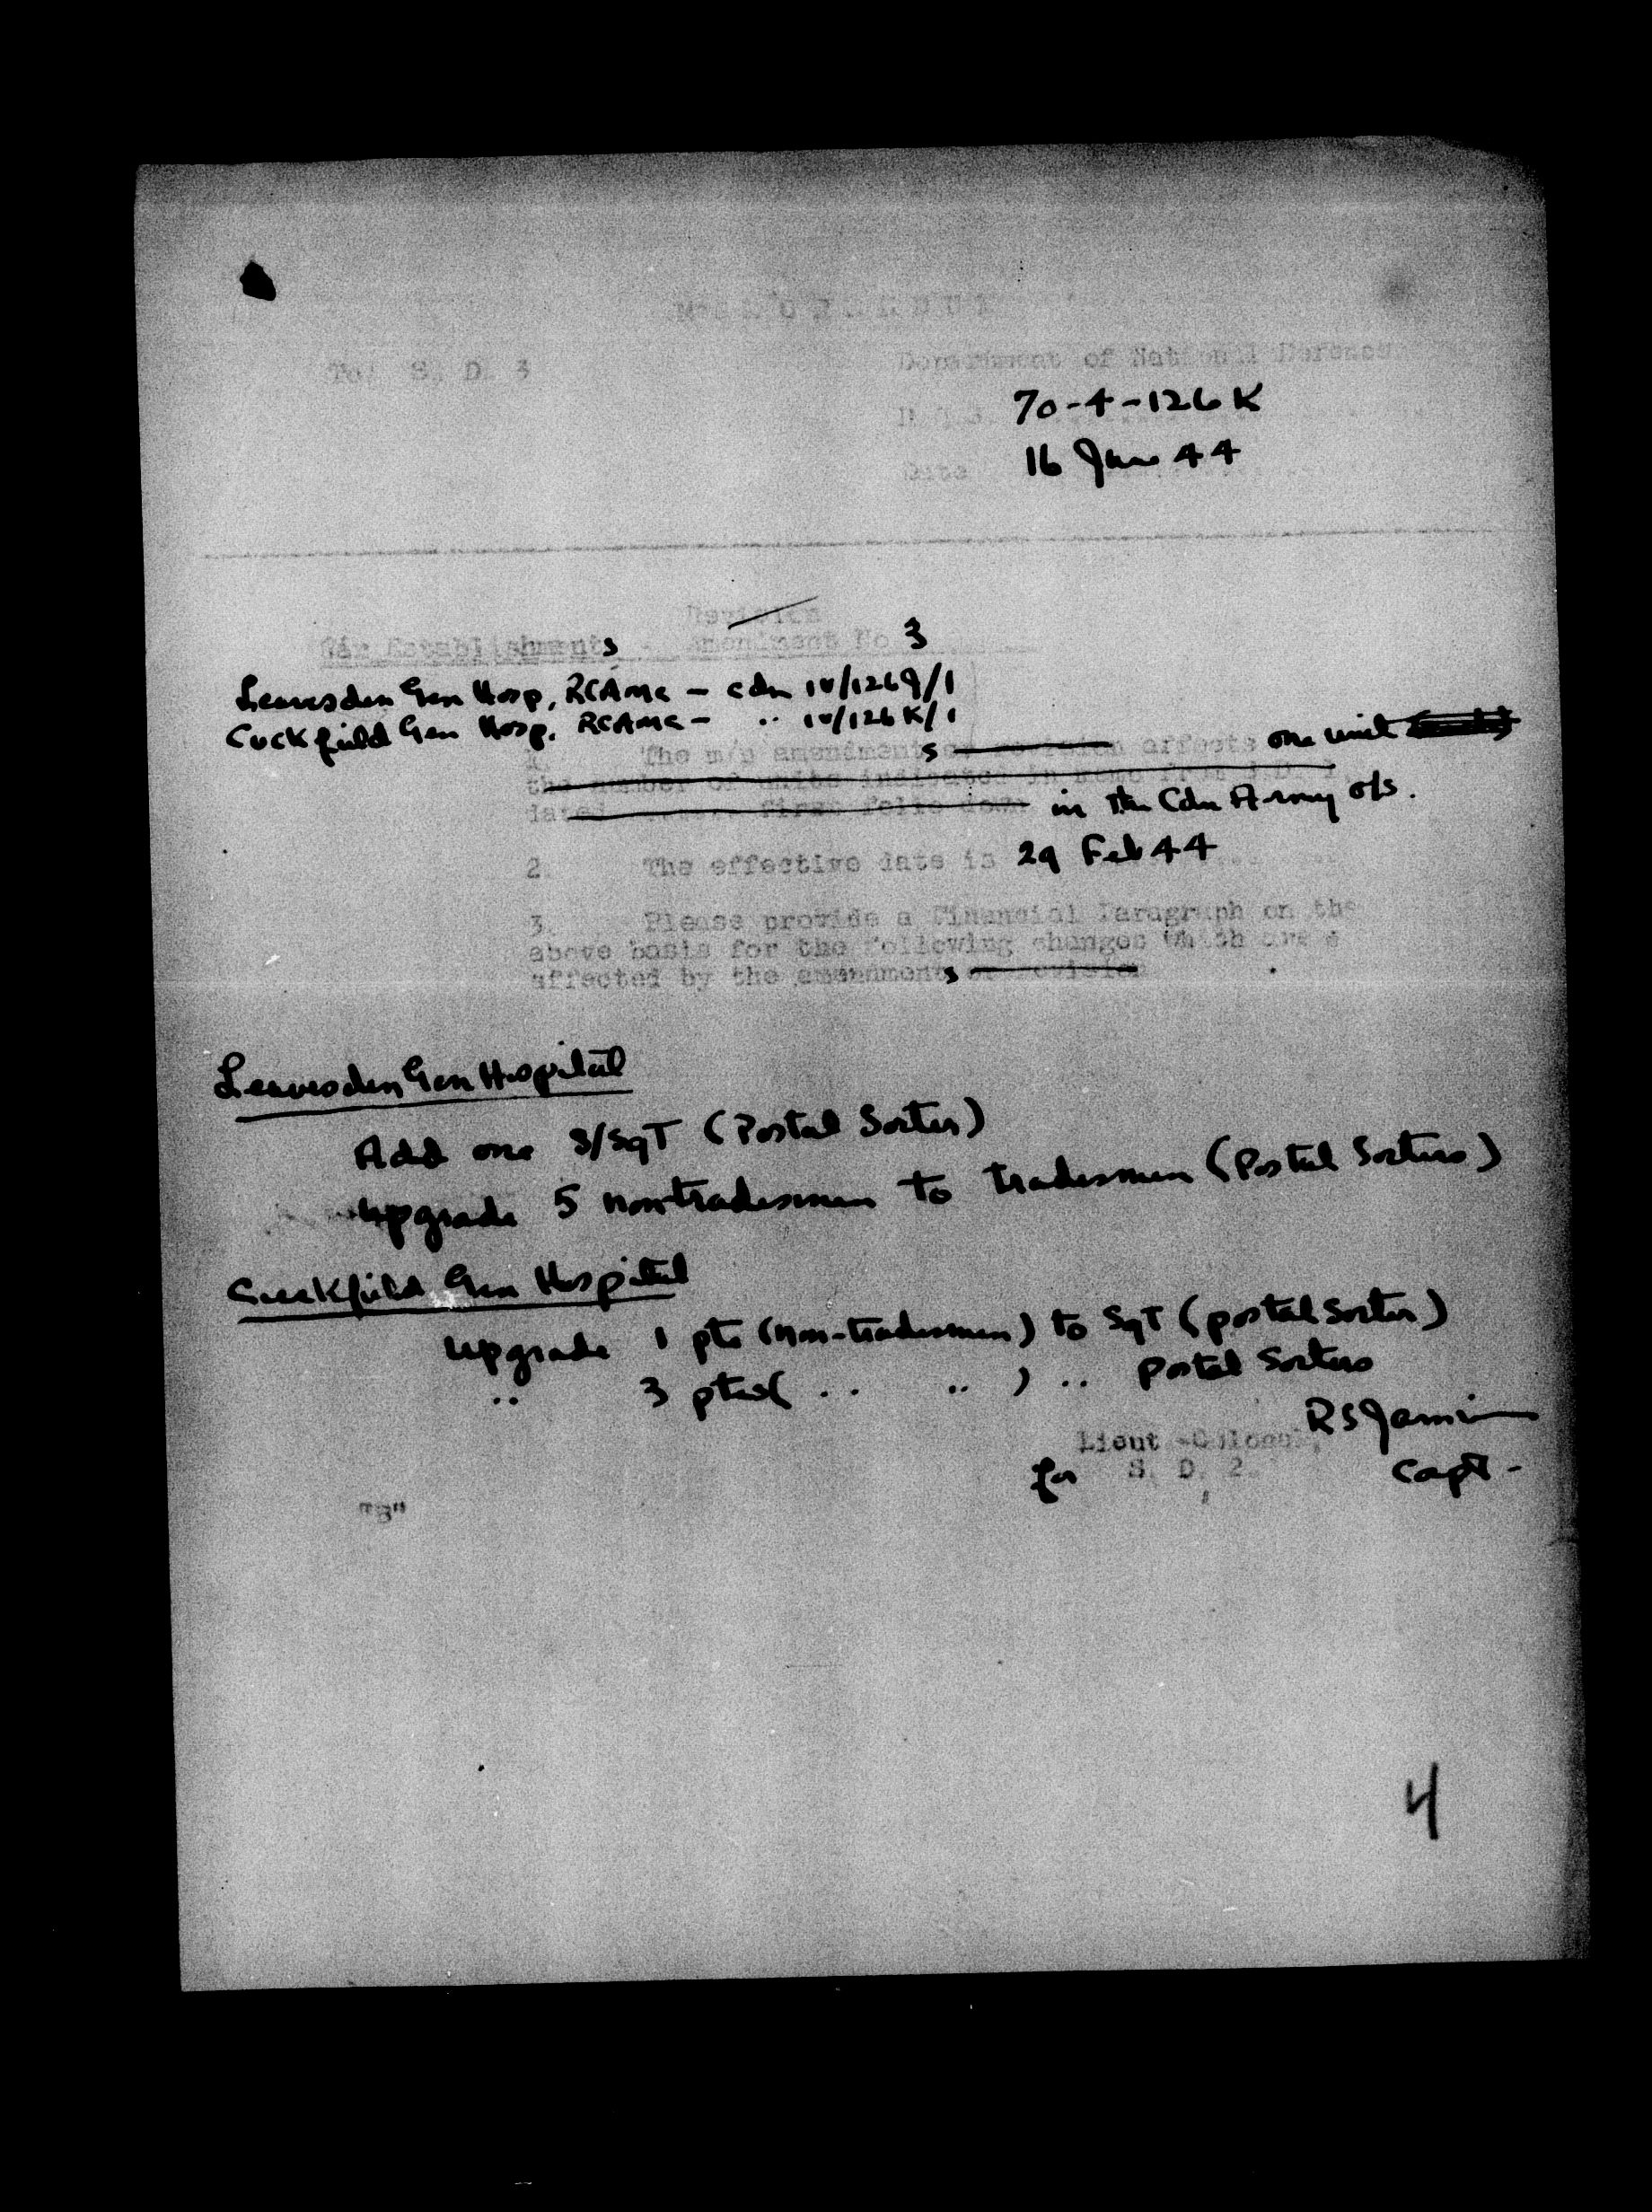 MEMORANDUM
To: S. D. 3
Department of National Defence
H.Q.S. 70-4-126 K
Date 16 Jun 44
Revision
War Establishments - Amendment No 3
Leavesden Gen Hosp, RCAMC - Cdn IV/126J/1
Cuckfield Gen Hosp, RCAMC - .. IV/126K/1
1. The m/n amendments or revision affects one unit
the number of units indicated in memo from S.D. 1,
dated first folio down in the Cdn Army o/s.
2. The effective date is 29 Feb 44
3. Please provide a Financial Paragraph on the
above basis for the following changes which are
affected by the amendments or revision
Leavesden Gen Hospital
Add one S/Sgt (Postal Sorter)
Upgrade 5 non-tradesmen to tradesmen (Postal Sorters)
Cuckfield Gen Hospital
Upgrade 1 pte (non-tradesmen) to Sgt (postal sorter)
.. 3 ptes( .. .. ) .. Postal Sorters
Lieut-Colonel,
for S. D. 2. Capt -
"B"
4